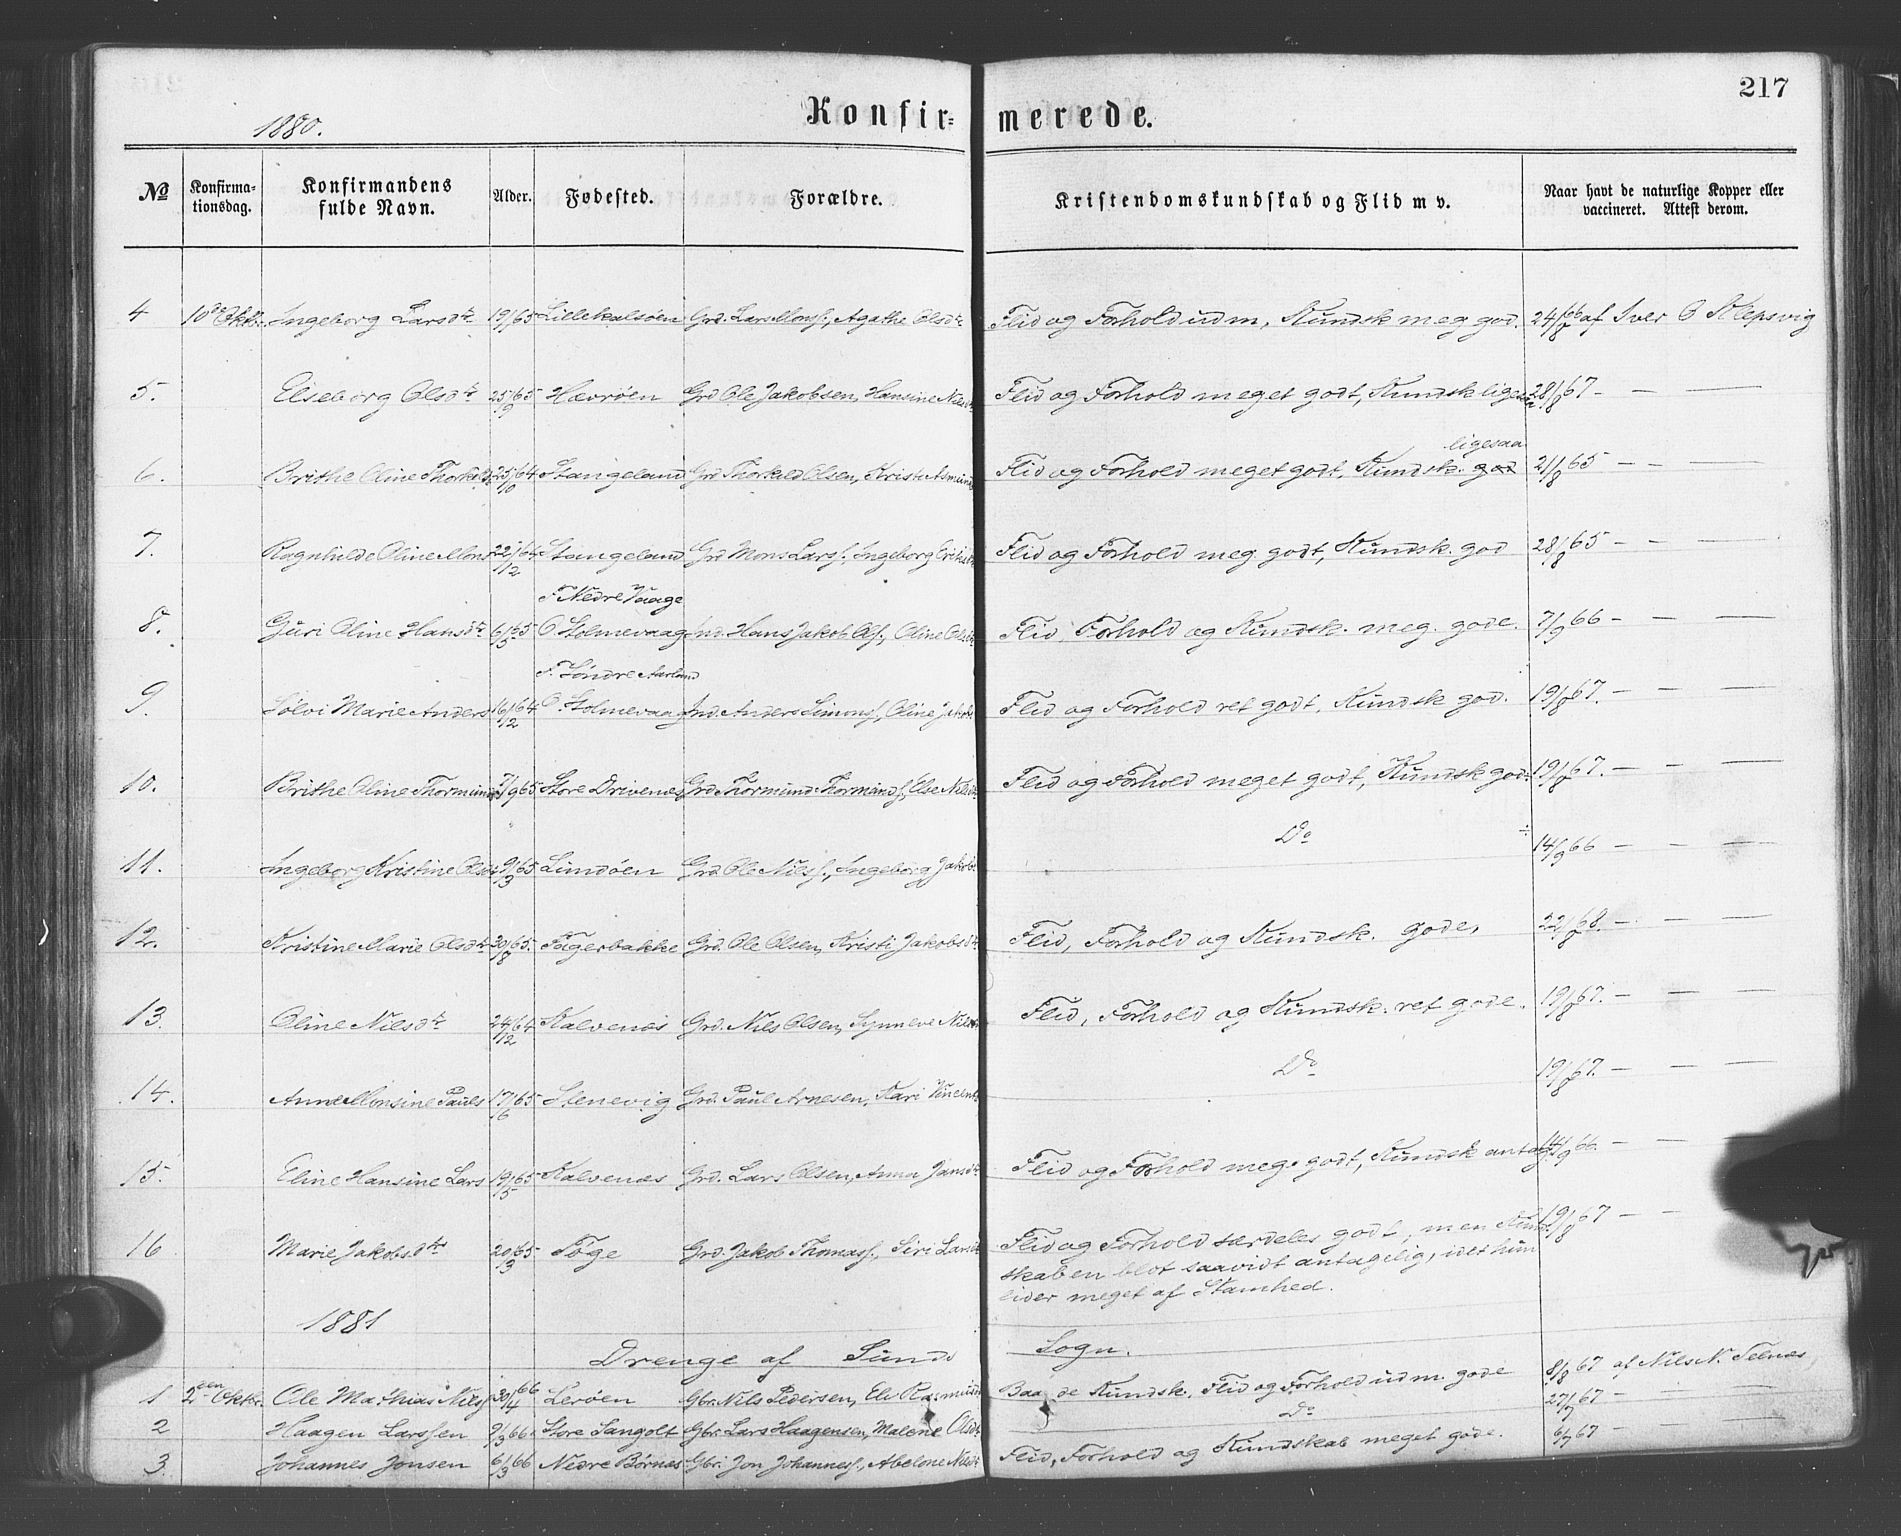 217
1880.
Konfir= merede.
№ Konfirma-tionsdag. Konfirmandens fulde Navn. Alder. Fødested. Forældre. Kristendomskundskab og Flid m v. Naar havt de naturlige Kopper eller vaccineret. Attest derom.
4 10de Oktbr. Ingeborg Larsdtr 19/65 Lillekalsøen Grd. Lars Monss., Agathe Olsdtr Flid og Forhold udm, Kundsk meg god. 24/8 66 af Iver O Klepsvig
5. Elseborg Olsdtr 25/9 65 Hævrøen Grd Ole Jakobsen, Hansine Nilsdtr Flid og Forhold meget godt, Kundsk ligesaa 28/8 67 - — —
ligesaa
6. Brithe Oline Thorkildsd 25/10 64 Stangeland Grd Thorkild Olsen, Kristi Asmunds Flid og Forhold meget godt, Kundsk. god 21/8 65 — — —
7. Ragnhilde Oline Mons 22/12 64 Stangeland Grd Mons Larss., Ingeborg Eriksdtr Flid og Forhold meg. godt, Kundsk. god 28/8 65 - — —
F. Nedre Vaage
8. Guri Oline Hansdtr 6/5 65 O Stolmevaag Ind. Hans Jakob Ols., Oline Olsdtr Flid, Forhold og Kundsk. meg. gode. 7/9 66 - — —
F. Søndre Aarland
9. Sølvi Marie Anders 16/12 64 O. Stolmevaag Ind. Anders Simonss., Oline Jakobs Flid og Forhold ret godt, Kundsk god. 19/8 67. — — —
10. Brithe Oline Thormunds 7/9 65 Store Drivenes Grd Thormund Thormunds., Else Nilsdtr Flid og Forhold meget godt, Kundsk god: 19/8 67. — — —
11. Ingeborg Kristine Olsdtr 9/3 65 Limdøen Grd. Ole Nilss., Ingeborg Jakobs Do 14/9 66 — — —
12. Kristine Marie Olsdtr 30/8 65. Føgerbakke Grd. Ole Olsen, Kristi Jakobsdtr Flid, Forhold og Kundsk. gode, 22/8 68. — — —
13. Oline Nilsdtr 24/12 64 Kalvenæs Grd. Nils Olsen, Synneve Nilsdtr Flid, Forhold og Kundsk. ret gode. 19/8 67. — — —
14. Anne Monsine Pauls 17/6 65 Stenevig Grd. Paul Arnesen, Kari Vincents Do 19/8 67. — — —
15. Eline Hansine Lars 19/5 65 Kalvenæs Grd. Lars Olsen, Anna Jansdtr Flid og Forhold meg. godt, Kundsk antag. 14/9 66. — —
16 Marie Jakobsdtr 20/3 65 Føge Grd. Jakob Thomass., Siri Larsdtr Flid og Forhold særdeles godt, men Kund- 19/8 67 — —
skaben blot saavidt antagelig, idet hun
lider meget af Stamhed.
1881
Drenge af Sunds Sogn.
1 2den Oktbr. Ole Mathias Nilss 30/4 66 Lerøen Gbr. Nils Pedersen, Eli Rasmusd Baade Kundsk., Flid og Forhold udm. gode 8/8 67 af Nils N. Telnæs
2 Haagen Larssen 9/3 66. Store Sangolt Gbr. Lars Haagensen, Malene Olsdtr Do 27/7 67 — —
3. Johannes Jonsen 6/3 66 Nedre Børnes Gbr. Jon Johanness., Abelone Nilsdtr Flid, Forhold og Kundskab meget gode. 6/7 67 —